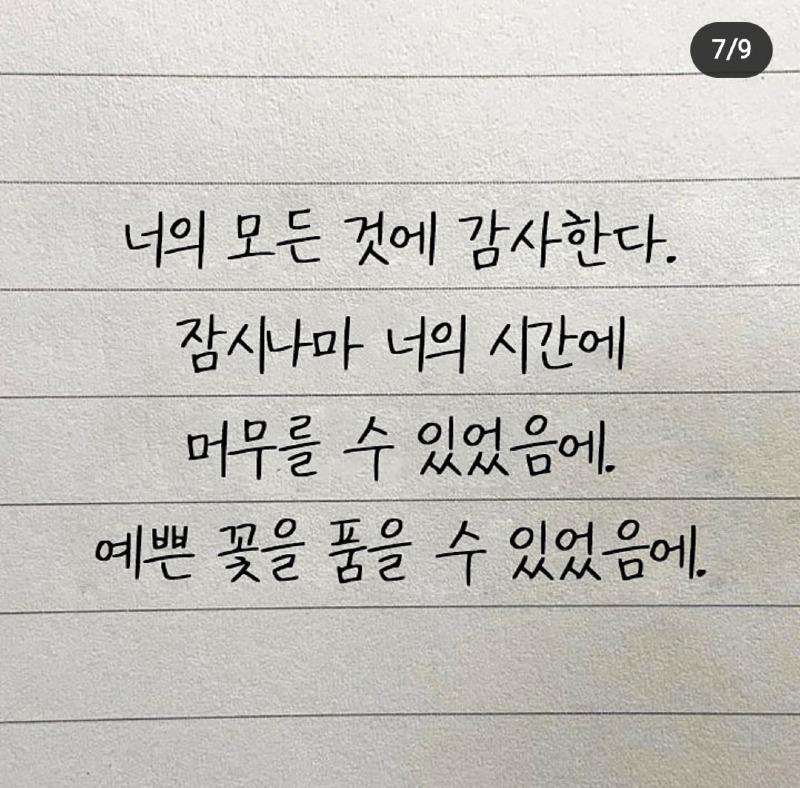 7/9
너의 모든 것에 감사한다.
잠시나마 너의 시간에
머무를 수 있었음에.
예쁜 꽃을 품을 수 있었음에.